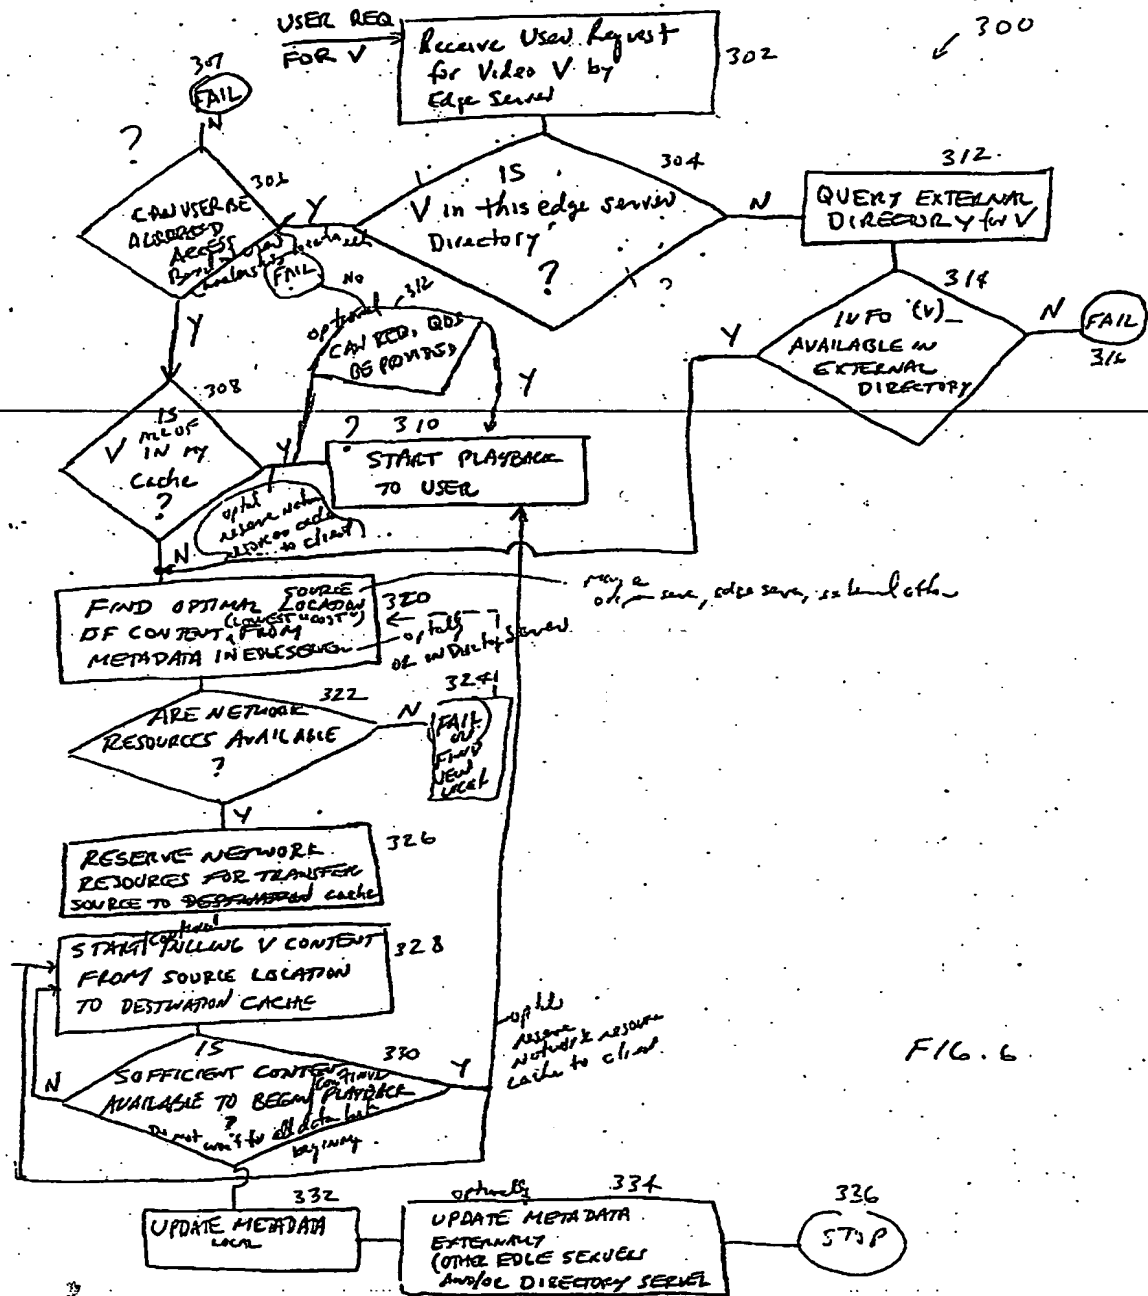 USER REQ
FOR V
Receive User Request
for Video V by
Edge Server
302
300
307
FAIL
N
?
306
CAN USER BE
ACCESS
Y
304
IS
V in this edge server
Directory
?
N
312
QUERY EXTERNAL
DIRECTORY for V
314
INFO (V)
AVAILABLE IN
EXTERNAL
DIRECTORY
Y
N
FAIL
316
FAIL
NO
312
optional
CAN REQ. QOS
BE PROVIDED
Y
Y
308
IS
ALL OF
V IN MY
Cache
?
Y
N
?
310
START PLAYBACK
TO USER
optnl
reserve
cache
to client
FIND OPTIMAL SOURCE LOCATION
OF CONTENT, (LOWEST "COST") FROM
METADATA IN EDGE SERVER
320
may be
server, edge server, external other
optnlly
or in Directory Server
322
ARE NETWORK
RESOURCES AVAILABLE
?
N
Y
324
FAIL
OR
FIND
NEW
RESERVE NETWORK
RESOURCES FOR TRANSFER
SOURCE TO DESTINATION cache
326
START/continue PULLING V CONTENT
FROM SOURCE LOCATION
TO DESTINATION CACHE
328
330
IS
SUFFICIENT CONTENT
AVAILABLE TO BEGIN/CONTINUE PLAYBACK
?
Do not wait for all data but
beginning
N
Y
optnl
reserve
network resource
cache to client
FIG. 6
332
UPDATE METADATA
LOCAL
optionally
334
UPDATE METADATA
EXTERNALLY
(OTHER EDGE SERVERS
AND/OR DIRECTORY SERVER
336
STOP